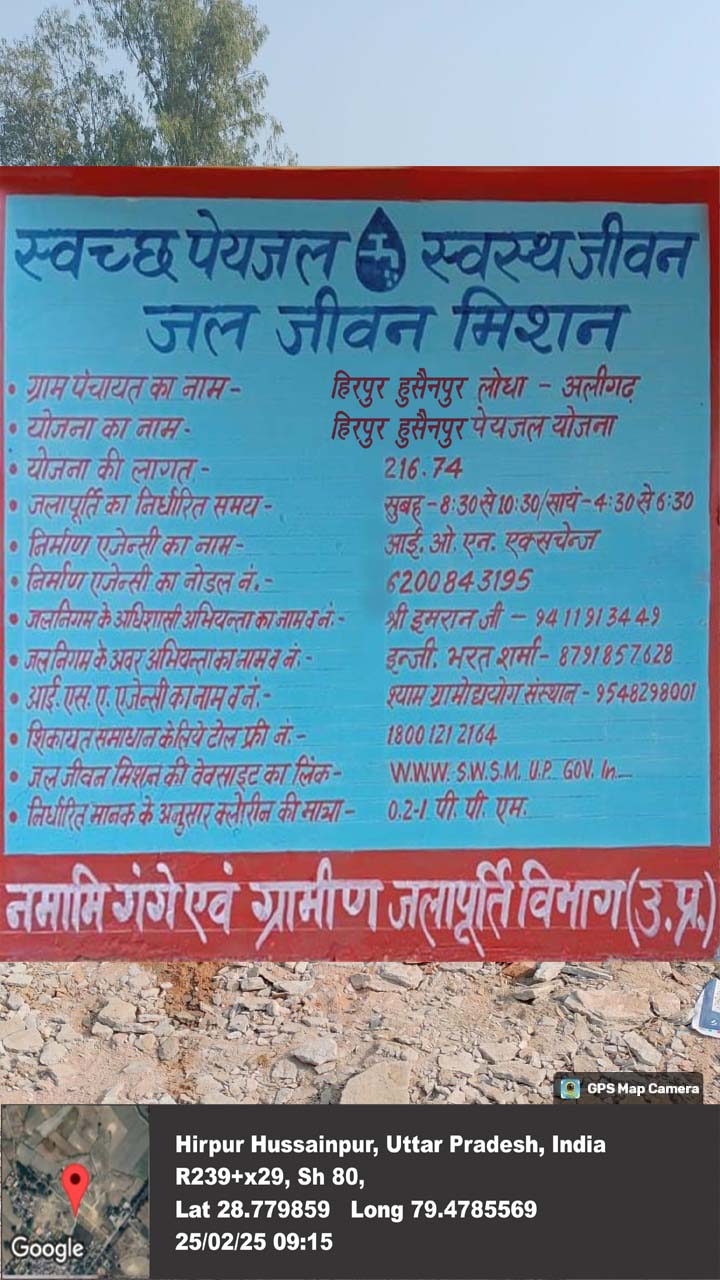 स्वच्छ पेयजल स्वस्थ जीवन
जल जीवन मिशन
• ग्राम पंचायत का नाम - हिरपुर हुसैनपुर लोधा - अलीगढ़
• योजना का नाम - हिरपुर हुसैनपुर पेयजल योजना
• योजना की लागत - 216.74
• जलापूर्ति का निर्धारित समय - सुबह - 8:30 से 10:30/सायं - 4:30 से 6:30
• निर्माण एजेन्सी का नाम - आई. ओ. एन. एक्सचेन्ज
• निर्माण एजेन्सी का नोडल नं. - 6200843195
• जलनिगम के अधिशासी अभियन्ता का नाम व नं. - श्री इमरान जी - 9411913449
• जलनिगम के अवर अभियन्ता का नाम व नं. - इन्जी. भरत शर्मा - 8791857628
• आई. एस. ए. एजेन्सी का नाम व नं. - श्याम ग्रामोद्ययोग संस्थान - 9548298001
• शिकायत समाधान के लिये टोल फ्री नं. - 1800 121 2164
• जल जीवन मिशन की वेवसाइट का लिंक - W.W.W. S.W.S.M. U.P. GOV. In....
• निर्धारित मानक के अनुसार क्लोरीन की मात्रा - 0.2-1 पी. पी. एम.
नमामि गंगे एवं ग्रामीण जलापूर्ति विभाग (उ.प्र.)
GPS Map Camera
Hirpur Hussainpur, Uttar Pradesh, India
R239+x29, Sh 80,
Lat 28.779859 Long 79.4785569
25/02/25 09:15
Google